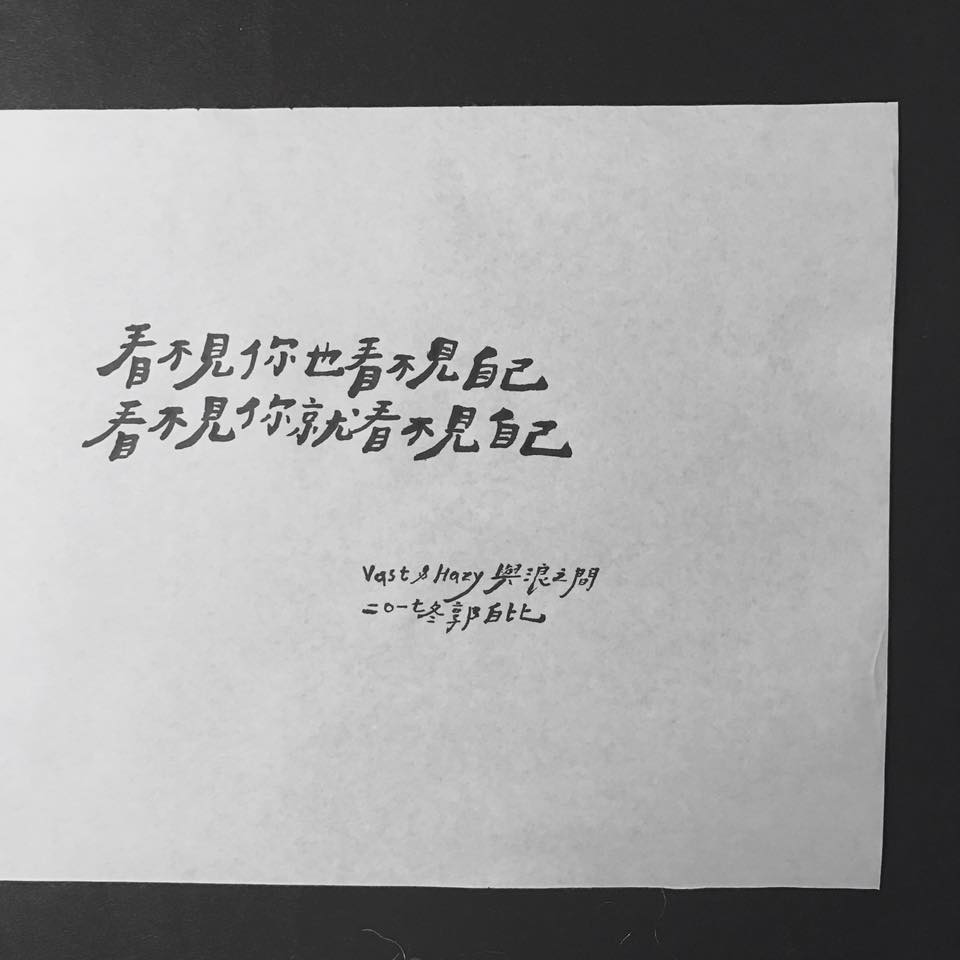 看不見你也看不見自己
看不見你就看不見自己
Vast & Hazy 與浪之間
二〇一七冬郭白比